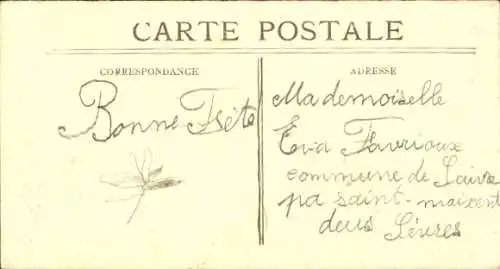 CARTE POSTALE
CORRESPONDANCE
ADRESSE
Bonne Fête
Mademoiselle
Eva Favrioux
commune de Saivre
pa saint-maixent
deus Sèvres